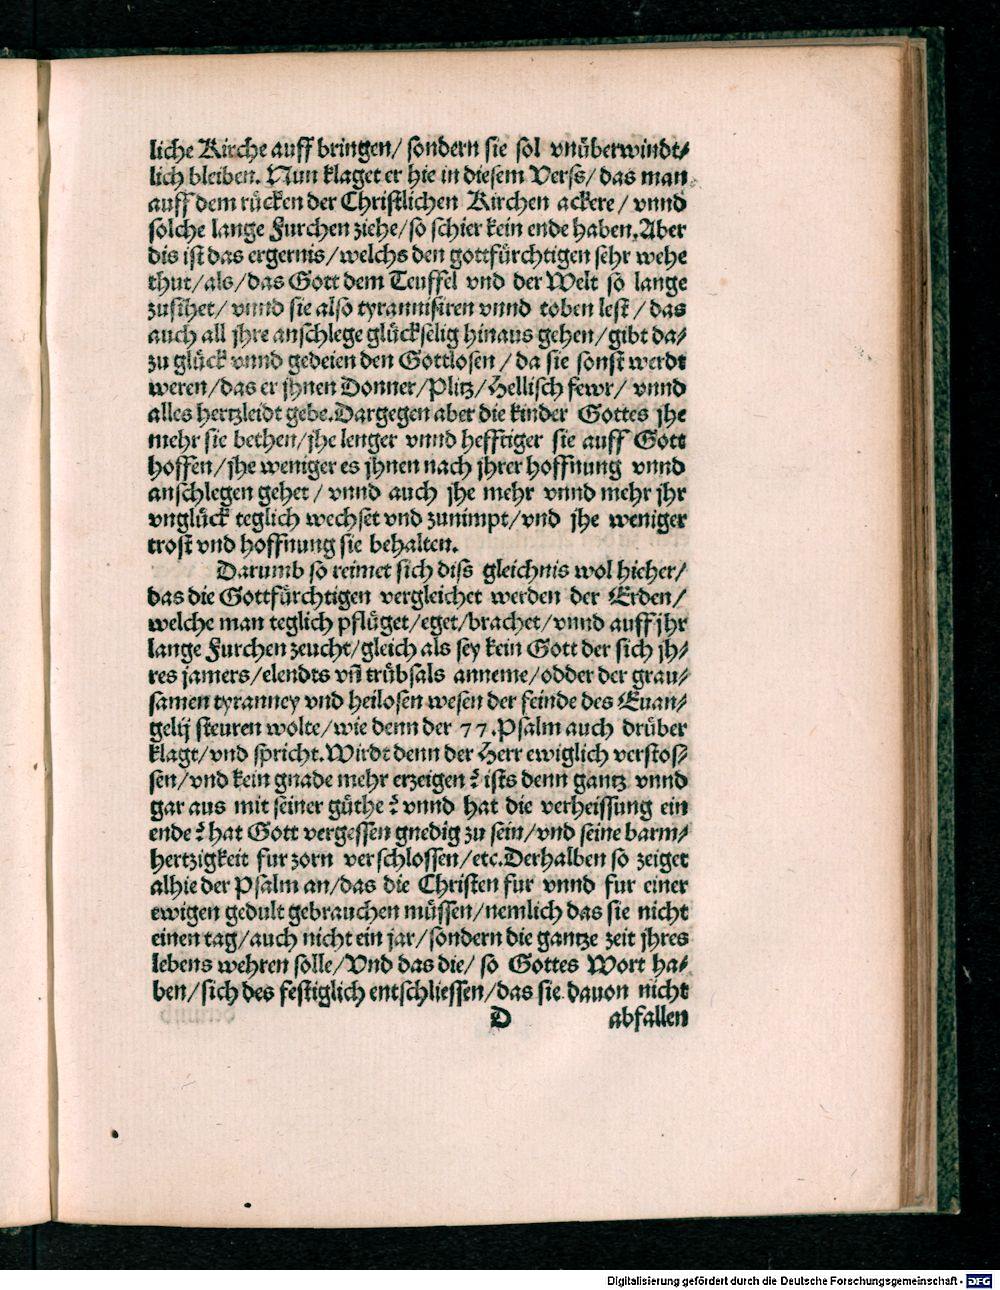 liche Kirche auff bringen/ sondern sie sol vnüberwindt⸗
lich bleiben. Nun klaget er hie in diesem Verss/ das man
auff dem rücken der Christlichen Kirchen ackere/ vnnd
solche lange Furchen ziehe/ so schier kein ende haben. Aber
dis ist das ergernis/ welchs den gottfürchtigen sehr wehe
thut/ als/ das Gott dem Teuffel vnd der Welt so lange
zusihet/ vnnd sie also tyrannisiren vnnd toben lest/ das
auch all jhre anschlege glückselig hinaus gehen/ gibt da⸗
zu glück vnnd gedeien den Gottlosen/ da sie sonst werdt
weren/ das er jhnen Donner/ Plitz/ Hellisch fewr/ vnnd
alles hertzleidt gebe. Dargegen aber die kinder Gottes jhe
mehr sie bethen/ jhe lenger vnnd hefftiger sie auff Gott
hoffen/ jhe weniger es jhnen nach jhrer hoffnung vnnd
anschlegen gehet/ vnnd auch jhe mehr vnnd mehr jhr
vnglück teglich wechset vnd zunimpt/ vnd jhe weniger
trost vnd hoffnung sie behalten.
Darumb so reimet sich diss gleichnis wol hieher/
das die Gottfürchtigen vergleichet werden der Erden/
welche man teglich pflüget/ eget/ brachet/ vnnd auff jhr
lange Furchen zeucht/ gleich als sey kein Gott der sich jh⸗
res jamers/ elendts vn̄ trübsals anneme/ odder der grau⸗
samen tyranney vnd heilosen wesen der feinde des Euan⸗
gelij steuren wolte/ wie denn der 77. Psalm auch drüber
klagt/ vnd spricht. Wirdt denn der Herr ewiglich verstos⸗
sen/ vnd kein gnade mehr erzeigen? ists denn gantz vnnd
gar aus mit seiner güthe? vnnd hat die verheissung ein
ende? hat Gott vergessen gnedig zu sein/ vnd seine barm⸗
hertzigkeit fur zorn verschlossen/ etc. Derhalben so zeiget
alhie der Psalm an/ das die Christen fur vnnd fur einer
ewigen gedult gebrauchen müssen/ nemlich das sie nicht
einen tag/ auch nicht ein jar/ sondern die gantze zeit jhres
lebens wehren solle/ Vnd das die/ so Gottes Wort ha⸗
ben/ sich des festiglich entschliessen/ das sie dauon nicht
D abfallen
Digitalisierung gefördert durch die Deutsche Forschungsgemeinschaft - DFG